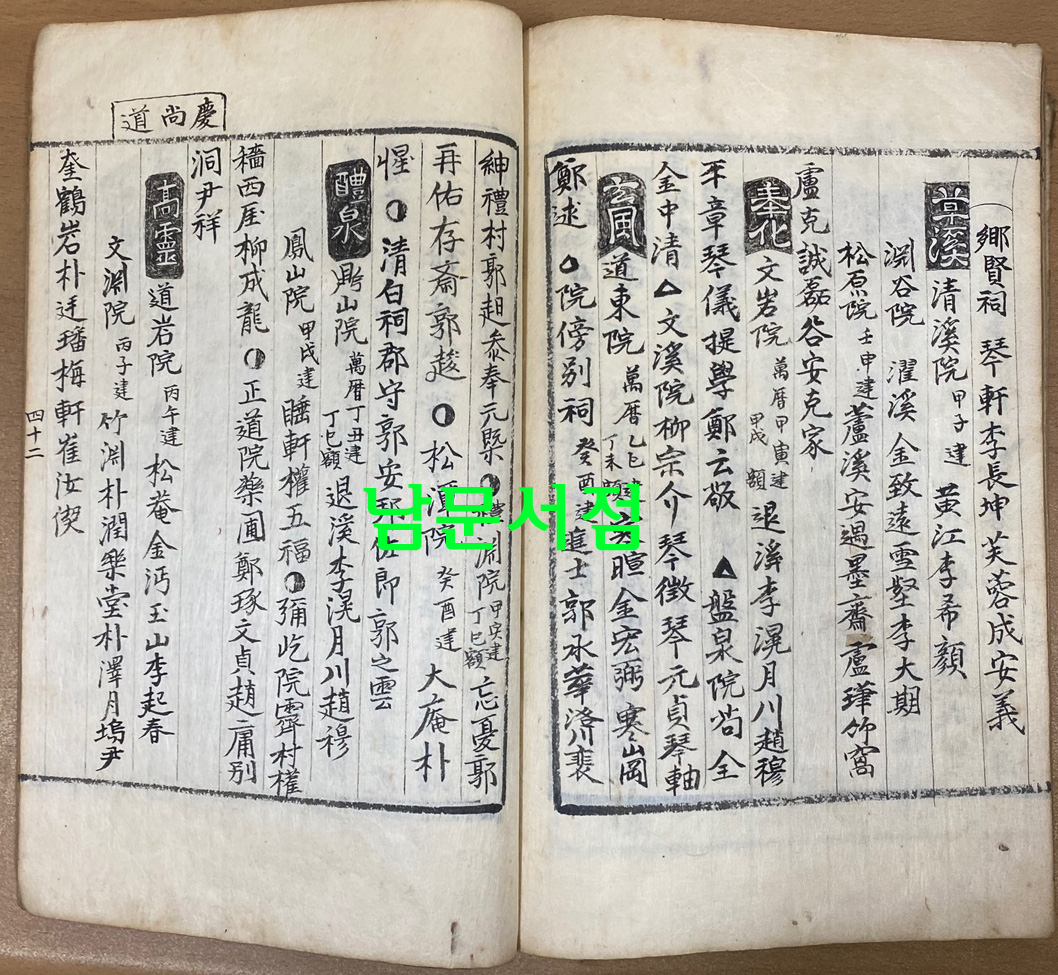 鄉賢祠 琴軒李長坤 芙蓉成安義
草溪 清溪院 甲子建 黃江李希顏
淵谷院 濯溪金致遠 雪壑李大期
松原院 壬申建 蘆溪安遇 墨齋盧
盧克誠 磊谷安克家
奉化 文岩院 萬曆甲寅建 甲戌額 退溪李滉 月川趙穆
平章琴儀 提學鄭云敬 ▲盤泉院 尙 全
金中清 △文溪院 柳宗介 琴徵 琴元貞 琴軸
玄風 道東院 萬曆乙巳建 丁未額 寒暄金宏弼 寒岡
鄭逑 院傍別祠 癸酉建 進士郭 裴
紳 禮村郭䞭 參奉元槩 ◑禮淵院 甲寅建 丁巳額 忘憂郭
再佑 存齋郭 ◑松潭院 癸酉建 大庵朴
惺 ◑清白祠 郡守郭安邦 佐郎郭之雲
醴泉 鼎山院 萬曆丁丑建 丁巳額 退溪李滉 月川趙穆
鳳山院 甲戌建 睡軒權五福 ◑彌屹院 霽村權
穡 西厓柳成龍 ◑正道院 藥圃鄭琢 文貞趙庸 別
洞尹祥
高靈 道岩院 丙午建 松菴金沔 玉山李起春
文淵院 丙子建 竹淵朴潤 樂堂朴澤 月塢尹
奎 鶴岩朴廷璠 梅軒崔汝偰
慶尙道
四十二
남문서점